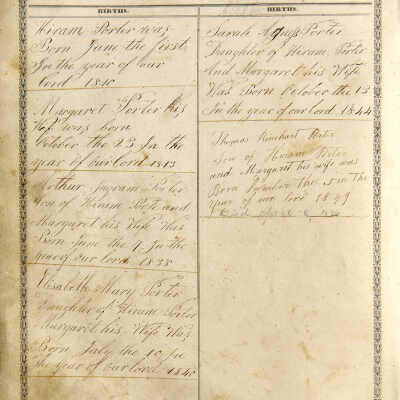 BIRTHS.
Hiram Porter was
Born June the first
In the year of our
lord 1810
Margaret Porter his
Wife was born
October the 23 In the
year of our lord 1813
Arthur Ingram Porter
Son of Hiram Porter and
Margaret his Wife Was
Born June the 9 In the
year of our lord 1838
Elisabeth Mary Porter
Daughter of Hiram Porter
Margaret his Wife Was
Born July the 10 In
the year of our lord 1840
BIRTHS.
Sarah Agness Porter
Daughter of Hiram Porter
And Margaret his Wife
Was Born October the 13
In the year of our lord 1844
Thomas Rinehart Porter
Son of Hiram Porter
and Margaret his wife was
Born the 5 in The
year of our lord 1849
Died